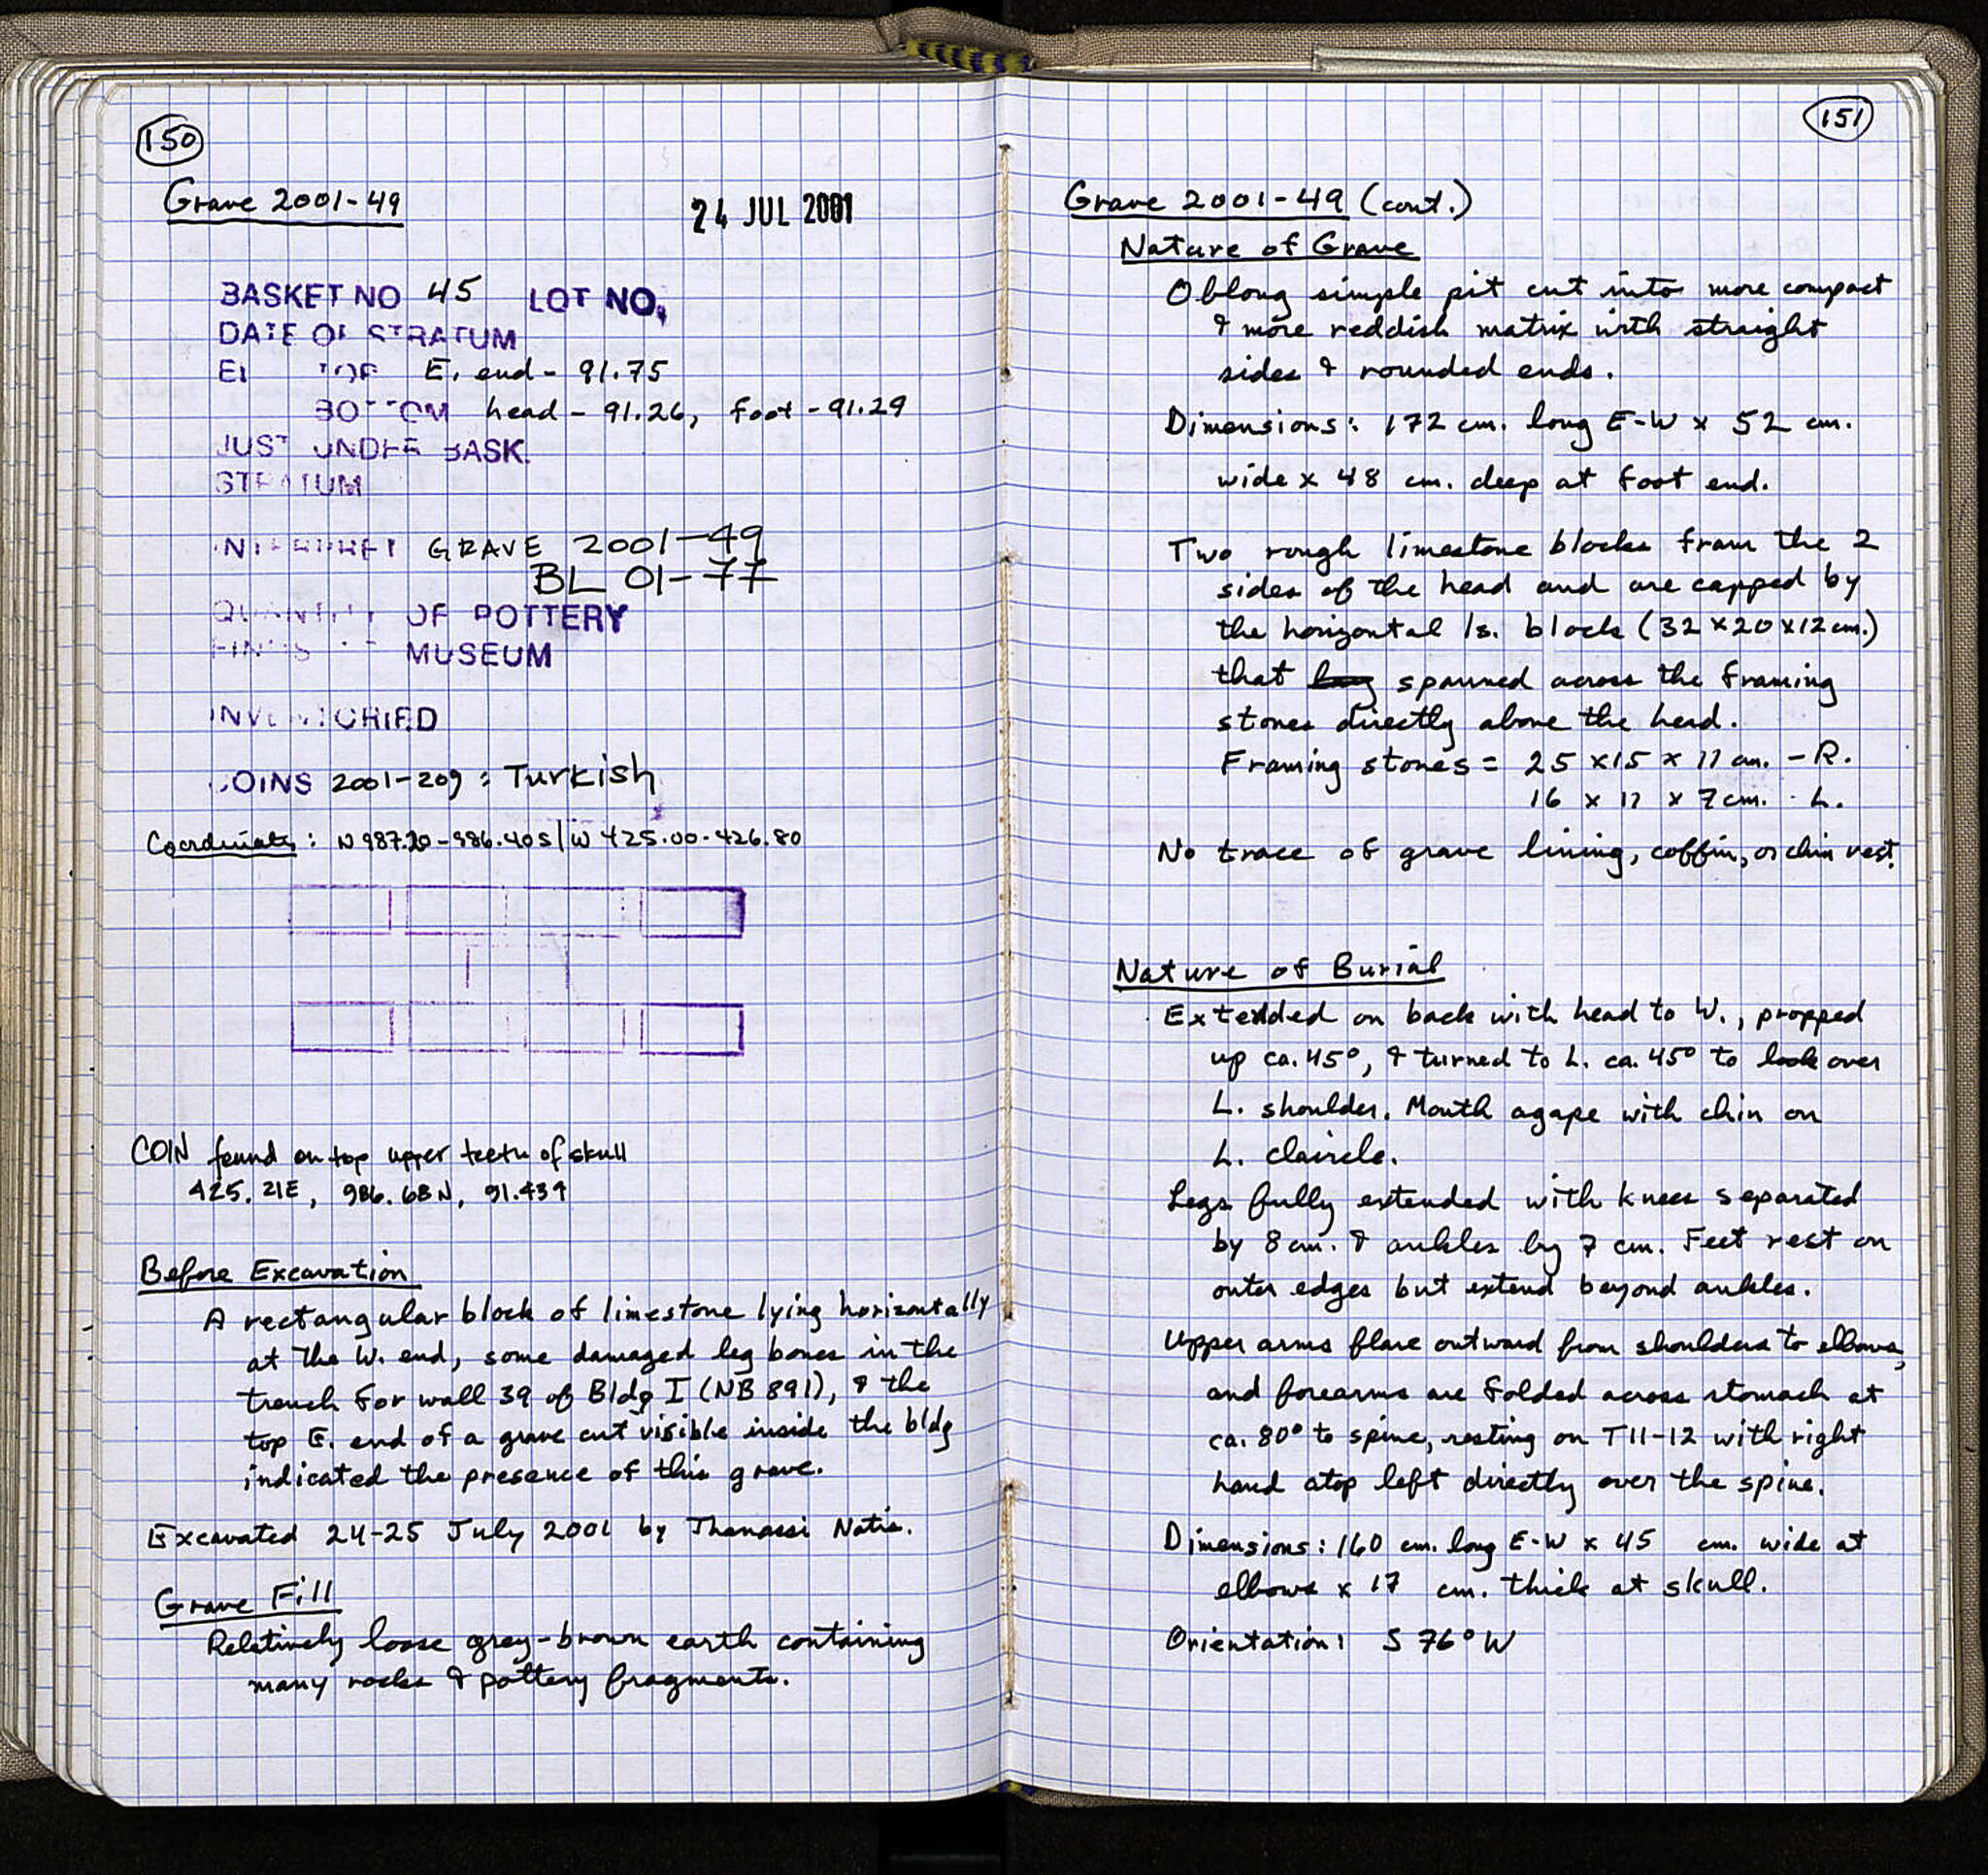 150
Grave 2001-49
24 JUL 2001
BASKET NO 45 LOT NO.
DATE OF STRATUM
EL TOP E. end - 91.75
BOTTOM head - 91.26, foot - 91.29
JUST UNDER BASK.
STRATUM
INTERPRET GRAVE 2001-49
BL 01-77
QUANTITY OF POTTERY
FINDS MUSEUM
INVENTORIED
COINS 2001-209: Turkish
Coordinates: N 987.20-986.40 S / W 425.00-426.80
COIN found on top upper teeth of skull
425.21E, 986.68N, 91.439
Before Excavation
A rectangular block of limestone lying horizontally
at the W. end, some damaged leg bones in the
trench for wall 39 of Bldg I (NB 891), & the
top E. end of a grave cut visible inside the bldg
indicated the presence of this grave.
Excavated 24-25 July 2001 by Thanassi Notis.
Grave Fill
Relatively loose grey-brown earth containing
many rocks & pottery fragments.
151
Grave 2001-49 (cont.)
Nature of Grave
Oblong simple pit cut into more compact
& more reddish matrix with straight
sides & rounded ends.
Dimensions: 172 cm. long E-W x 52 cm.
wide x 48 cm. deep at foot end.
Two rough limestone blocks fram the 2
sides of the head and are capped by
the horizontal ls. block (32 x 20 x 12 cm.)
that spanned across the framing
stones directly above the head.
Framing stones = 25 x 15 x 11 cm. - R.
16 x 11 x 7 cm. - L.
No trace of grave lining, coffin, or chin rest.
Nature of Burial
Extended on back with head to W., propped
up ca. 45°, & turned to L. ca. 45° to look over
L. shoulder. Mouth agape with chin on
L. clavicle.
Legs fully extended with knees separated
by 8 cm. & ankles by 7 cm. Feet rest on
outer edges but extend beyond ankles.
Upper arms flare outward from shoulders to elbows,
and forearms are folded across stomach at
ca. 80° to spine, resting on T11-12 with right
hand atop left directly over the spine.
Dimensions: 160 cm. long E-W x 45 cm. wide at
elbows x 17 cm. thick at skull.
Orientation: S 76° W